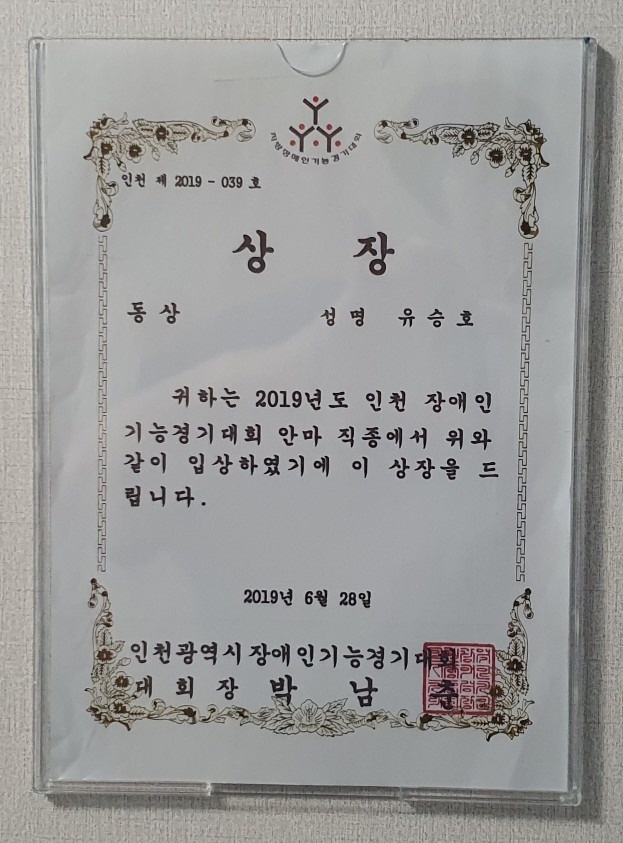 지방장애인기능경기대회
인천 제 2019 - 039 호
상 장
동상 성명 유승호
귀하는 2019년도 인천 장애인
기능경기대회 안마 직종에서 위와
같이 입상하였기에 이 상장을 드
립니다.
2019년 6월 28일
인천광역시장애인기능경기대회
대 회 장 박 남 춘